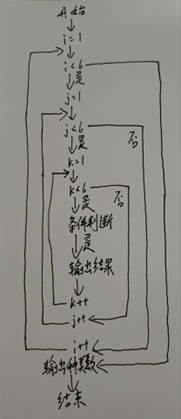 开始
i=1
i<6
是
j=1
j<6
是
否
k=1
k<6
是
否
条件判断
是
输出结果
k++
j++
i++
输出种类数
结束